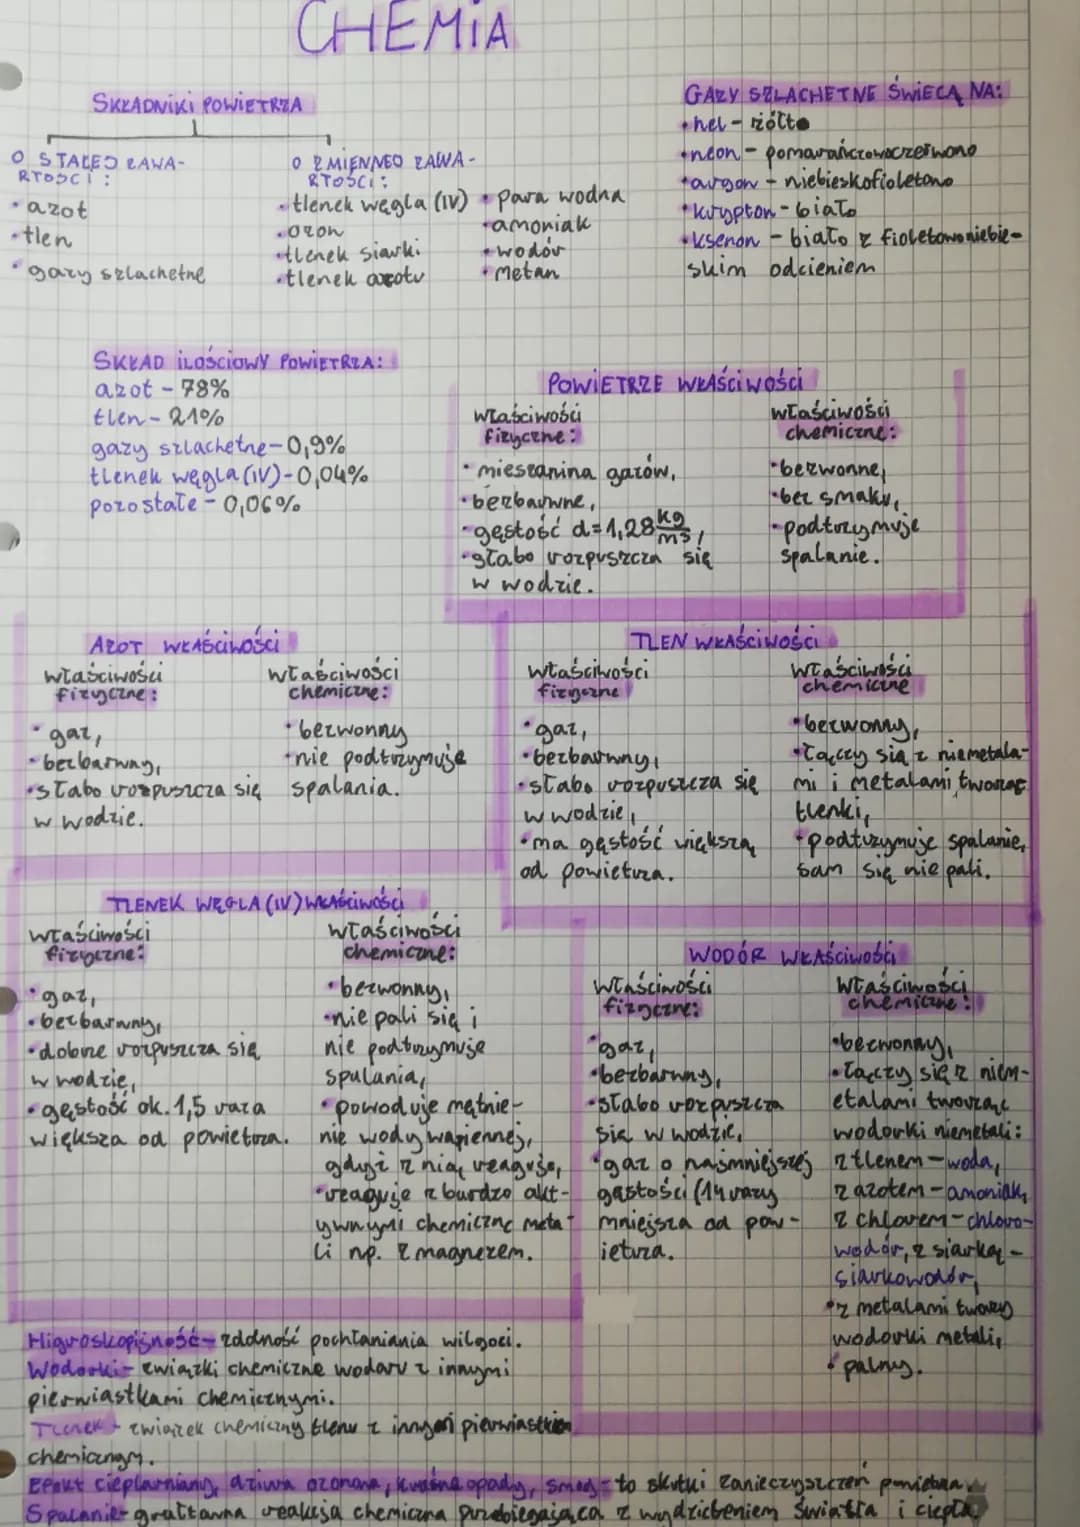 CHEMIA
SKŁADNIKI POWIETRZA
O STAŁEJ ZAWA-
RTOŚCI:
• azot
• tlen
• gazy szlachetne
O ZMIENNEJ ZAWA-
RTOŚCI:
• tlenek węgla (IV)
• ozon
• tlenek siarki
• tlenek azotu
• para wodna
• amoniak
• wodór
• metan
GAZY SZLACHETNE ŚWIECĄ NA:
• hel - żółto
• neon - pomarańczowoczerwono
• argon - niebieskofioletowo
• krypton - biało
• ksenon - biało z fioletowoniebie-
skim odcieniem
SKŁAD ILOŚCIOWY POWIETRZA:
azot - 78%
tlen - 21%
gazy szlachetne - 0,9%
tlenek węgla (IV) - 0,04%
pozostałe - 0,06%
POWIETRZE WŁAŚCIWOŚCI
właściwości
fizyczne:
• mieszanina gazów,
• bezbarwne,
• gęstość d = 1,28 kg/m³,
• słabo rozpuszcza się
w wodzie.
właściwości
chemiczne:
• bezwonne,
• bez smaku,
• podtrzymuje
spalanie.
AZOT WŁAŚCIWOŚCI
właściwości
fizyczne:
• gaz,
• bezbarwny,
• słabo rozpuszcza się
w wodzie.
właściwości
chemiczne:
• bezwonny
• nie podtrzymuje
spalania.
TLEN WŁAŚCIWOŚCI
właściwości
fizyczne
• gaz,
• bezbarwny,
• słabo rozpuszcza się
w wodzie,
• ma gęstość większą
od powietrza.
właściwości
chemiczne
• bezwonny,
• łączy się z niemetala-
mi i metalami tworząc
tlenki,
• podtrzymuje spalanie,
sam się nie pali.
TLENEK WĘGLA (IV) WŁAŚCIWOŚCI
właściwości
fizyczne:
• gaz,
• bezbarwny,
• dobrze rozpuszcza się
w wodzie,
• gęstość ok. 1,5 raza
większa od powietrza.
właściwości
chemiczne:
• bezwonny,
• nie pali się i
nie podtrzymuje
spalania,
• powoduje mętnie-
nie wody wapiennej,
gdyż z nią reaguje,
• reaguje z bardzo akt-
ywnymi chemiczne meta-
li np. z magnezem.
WODÓR WŁAŚCIWOŚCI
właściwości
fizyczne:
• gaz,
• bezbarwny,
• słabo rozpuszcza
się w wodzie,
• gaz o najmniejszej
gęstości (14 razy
mniejsza od pow-
ietrza.
właściwości
chemiczne:
• bezwonny,
• łączy się z niem-
etalami tworząc
wodorki niemetali:
z tlenem - woda,
z azotem - amoniak,
z chlorem - chloro-
wodór, z siarką -
siarkowodór,
• z metalami tworzy
wodorki metali,
• palny.
Higroskopijność - zdolność pochłaniania wilgoci.
Wodorki - związki chemiczne wodoru z innymi
pierwiastkami chemicznymi.
Tlenek - związek chemiczny tlenu z innym pierwiastkiem
chemicznym.
Efekt cieplarniany, dziura ozonowa, kwaśne opady, smog - to skutki zanieczyszczeń powietrza.
Spalanie - gwałtowna reakcja chemiczna przebiegająca z wydzieleniem światła i ciepła.